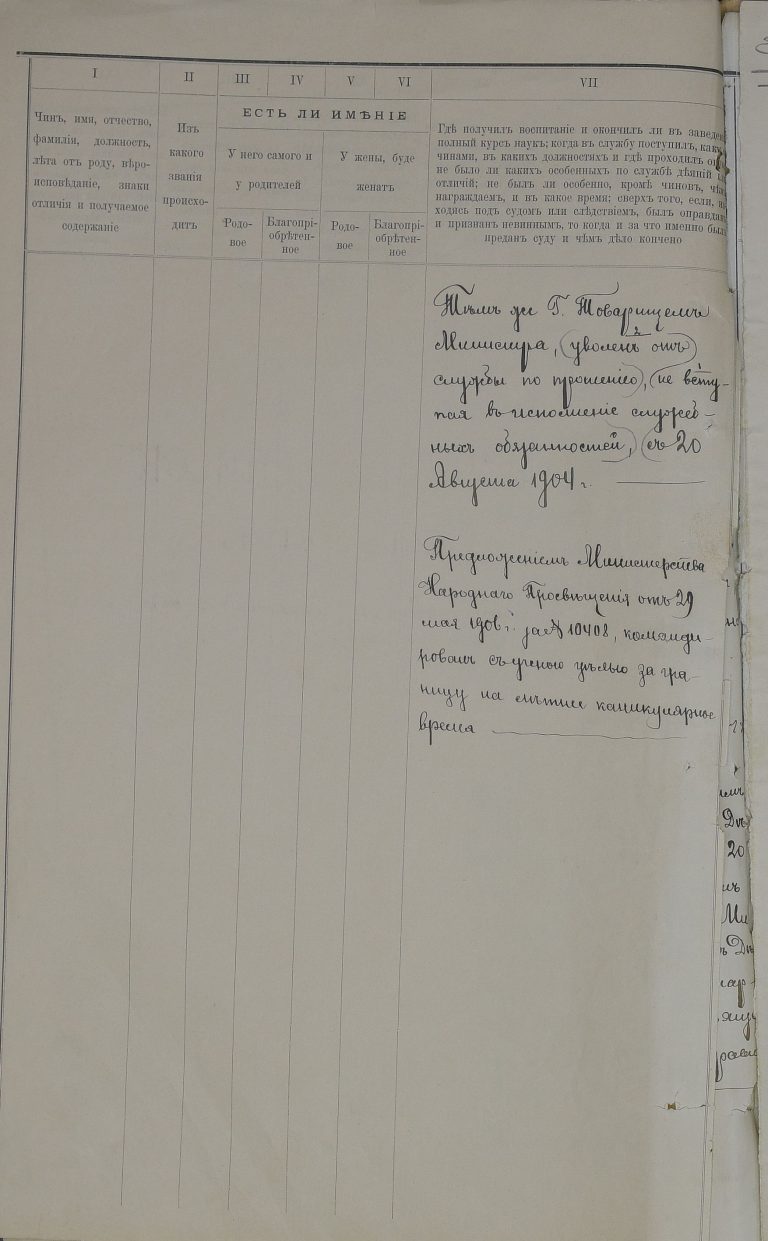 I II III IV V VI VII
Чинъ, имя, отчество,
фамилія, должность,
лѣта отъ роду, вѣро-
исповѣданіе, знаки
отличія и получаемое
содержаніе
Изъ
какого
званія
происхо-
дитъ
ЕСТЬ ЛИ ИМѢНІЕ
У него самого и
у родителей
У жены, буде
женатъ
Родо-
вое
Благопрі-
обрѣтен-
ное
Родо-
вое
Благопрі-
обрѣтен-
ное
Гдѣ получилъ воспитаніе и окончилъ ли въ заведе
полный курсъ наукъ; когда въ службу поступилъ, как
чинами, въ какихъ должностяхъ и гдѣ проходилъ он
не было ли какихъ особенныхъ по службѣ дѣяній
отличій; не былъ ли особенно, кромѣ чиновъ, чѣ
награждаемъ, и въ какое время; сверхъ того, если, н
ходясь подъ судомъ или слѣдствіемъ, былъ оправда
и признанъ невиннымъ, то когда и за что именно был
преданъ суду и чѣмъ дѣло кончено
Тѣмъ же Г. Товарищемъ
Министра, (уволенъ отъ)
службы по прошенію), (не всту-
пая въ исполненіе служеб-
ныхъ обязанностей,) (съ 20
Августа 1904 г.
Предложеніемъ Министерства
Народнаго Просвѣщенія отъ 29
мая 1906 г. за № 10408, команди-
рованъ съ ученою цѣлью за гра-
ницу на лѣтнее каникулярное
время
20